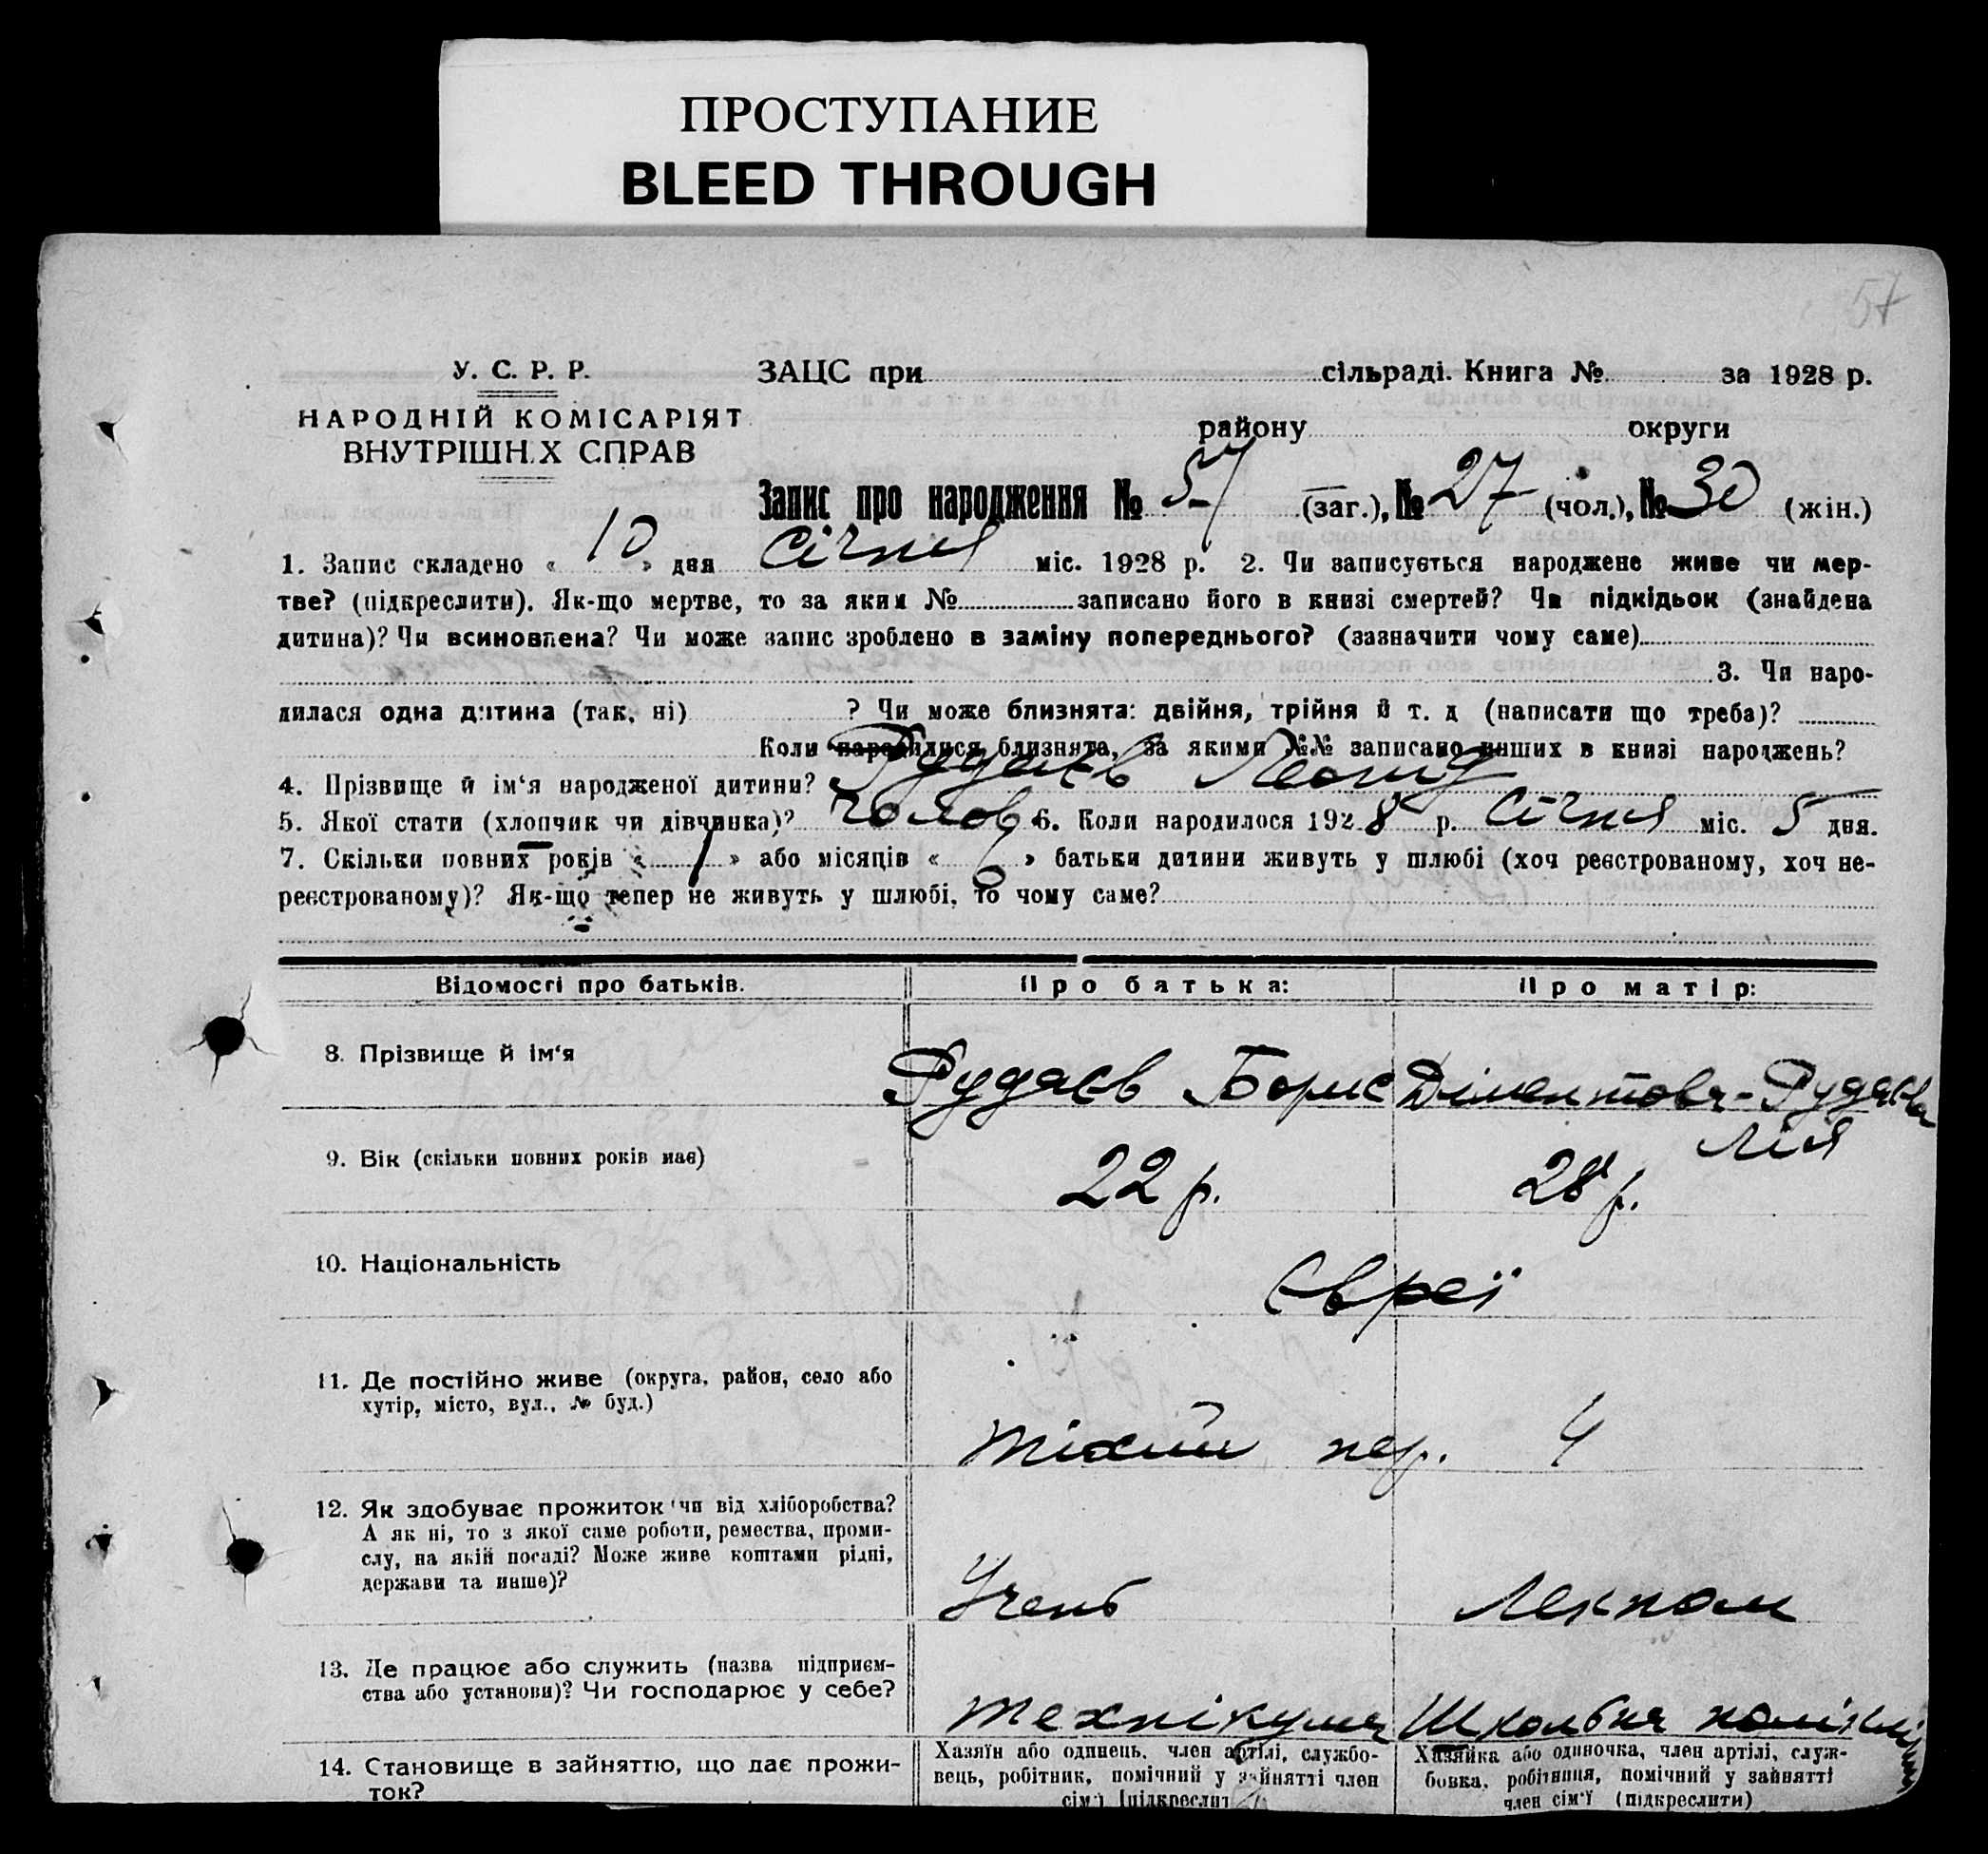 ПРОСТУПАНИЕ
BLEED THROUGH
57
У. С. Р. Р.
НАРОДНІЙ КОМІСАРІЯТ
ВНУТРІШН.Х СПРАВ
ЗАЦС при сільраді. Книга № за 1928 р.
району округи
Запис про народження № 57 (заг.), № 27 (чол.), № 30 (жін.)
1. Запис складено « 10 » дня Січня міс. 1928 р. 2. Чи записується народжене живе чи мер-
тве? (підкреслити). Як-що мертве, то за яким № записано його в книзі смертей? Чи підкідьок (знайдена
дитина)? Чи всиновлена? Чи може запис зроблено в заміну попереднього? (зазначити чому саме)
3. Чи наро-
дилася одна дитина (так, ні) ? Чи може близнята: двійня, трійня й т. д (написати що треба)?
Коли народилися близнята, за якими №№ записано инших в книзі народжень?
4. Прізвище й ім'я народженої дитини? Рудаєв Леонід
5. Якої стати (хлопчик чи дівчинка)? чолов. 6. Коли народилося 1928 р. Січня міс. 5 дня.
7. Скільки повних років « 1 » або місяців « 6 » батьки дитини живуть у шлюбі (хоч реєстрованому, хоч не-
реєстрованому)? Як-що тепер не живуть у шлюбі, то чому саме?
Відомості про батьків. Про батька: Про матір:
8. Прізвище й ім'я Рудаєв Борис Діментова-Рудаєва
Лія
9. Вік (скільки повних років має) 22 р. 28 р.
10. Національність Євреї
11. Де постійно живе (округа, район, село або
хутір, місто, вул., № буд.)
Тіхий пер. 4
12. Як здобуває прожиток чи від хліборобства?
А як ні, то з якої саме роботи, ремества, проми-
слу, на якій посаді? Може живе коштами рідні,
держави та инше)?
Учень Лекпом
13. Де працює або служить (назва підприєм-
ства або установи)? Чи господарює у себе?
Технікума Школьна
14. Становище в зайняттю, що дає прожи-
ток?
Хазяїн або одинець, член артілі, службо-
вець, робітник, помічний у зайнятті член
сім'ї (підкреслит
Хазяйка або одиночка, член артілі, служ-
бовка, робітниця, помічний у зайнятті
член сім'ї (підкреслити)